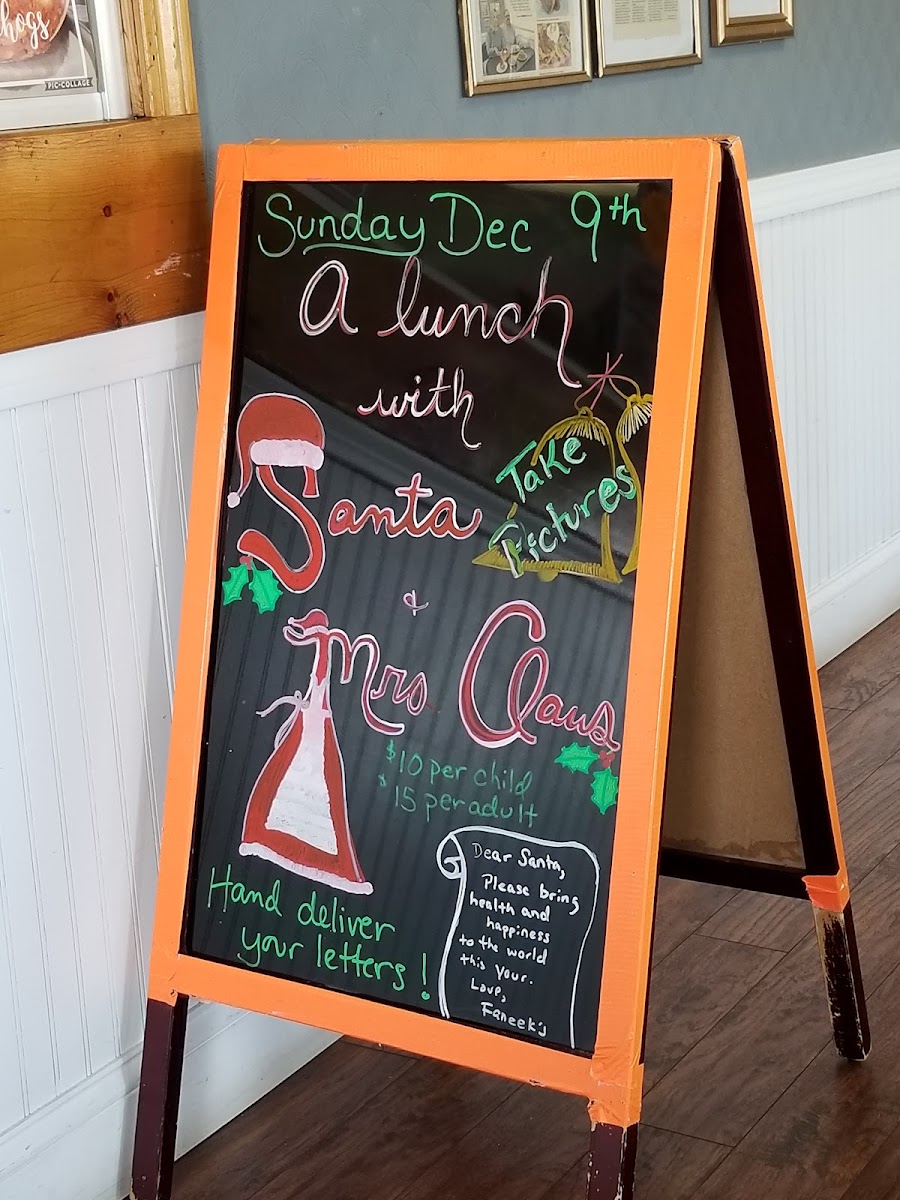 hogs
PIC-COLLAGE
Sunday Dec 9th
A lunch
with
Santa
Take
Pictures
&
Mrs. Claus
$10 per child
$15 per adult
Hand deliver
your letters!
Dear Santa,
Please bring
health and
happiness
to the world
this your.
Love,
Faneek's